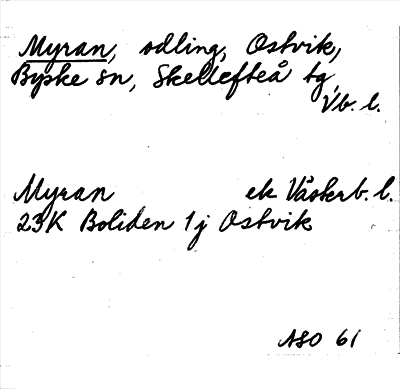 Myran, odling, Ostvik,
Byske sn, Skellefteå tg,
Vb. l.
Myran ek Västerb. l.
23K Boliden 1j Ostvik
ASO 61